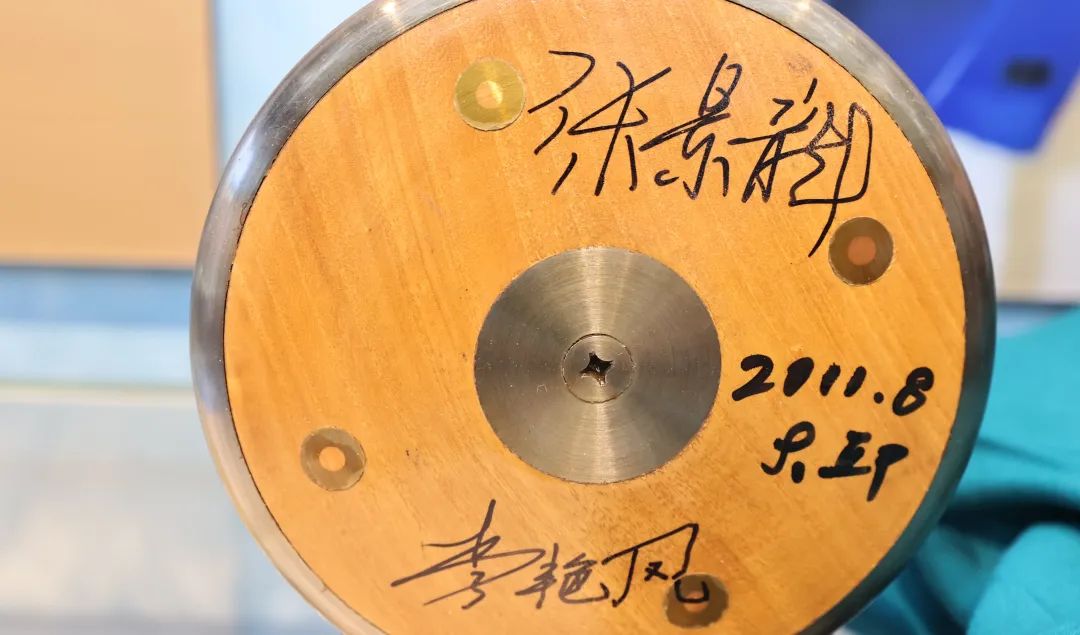 张景龍
2011.8
大邱
李艳凤